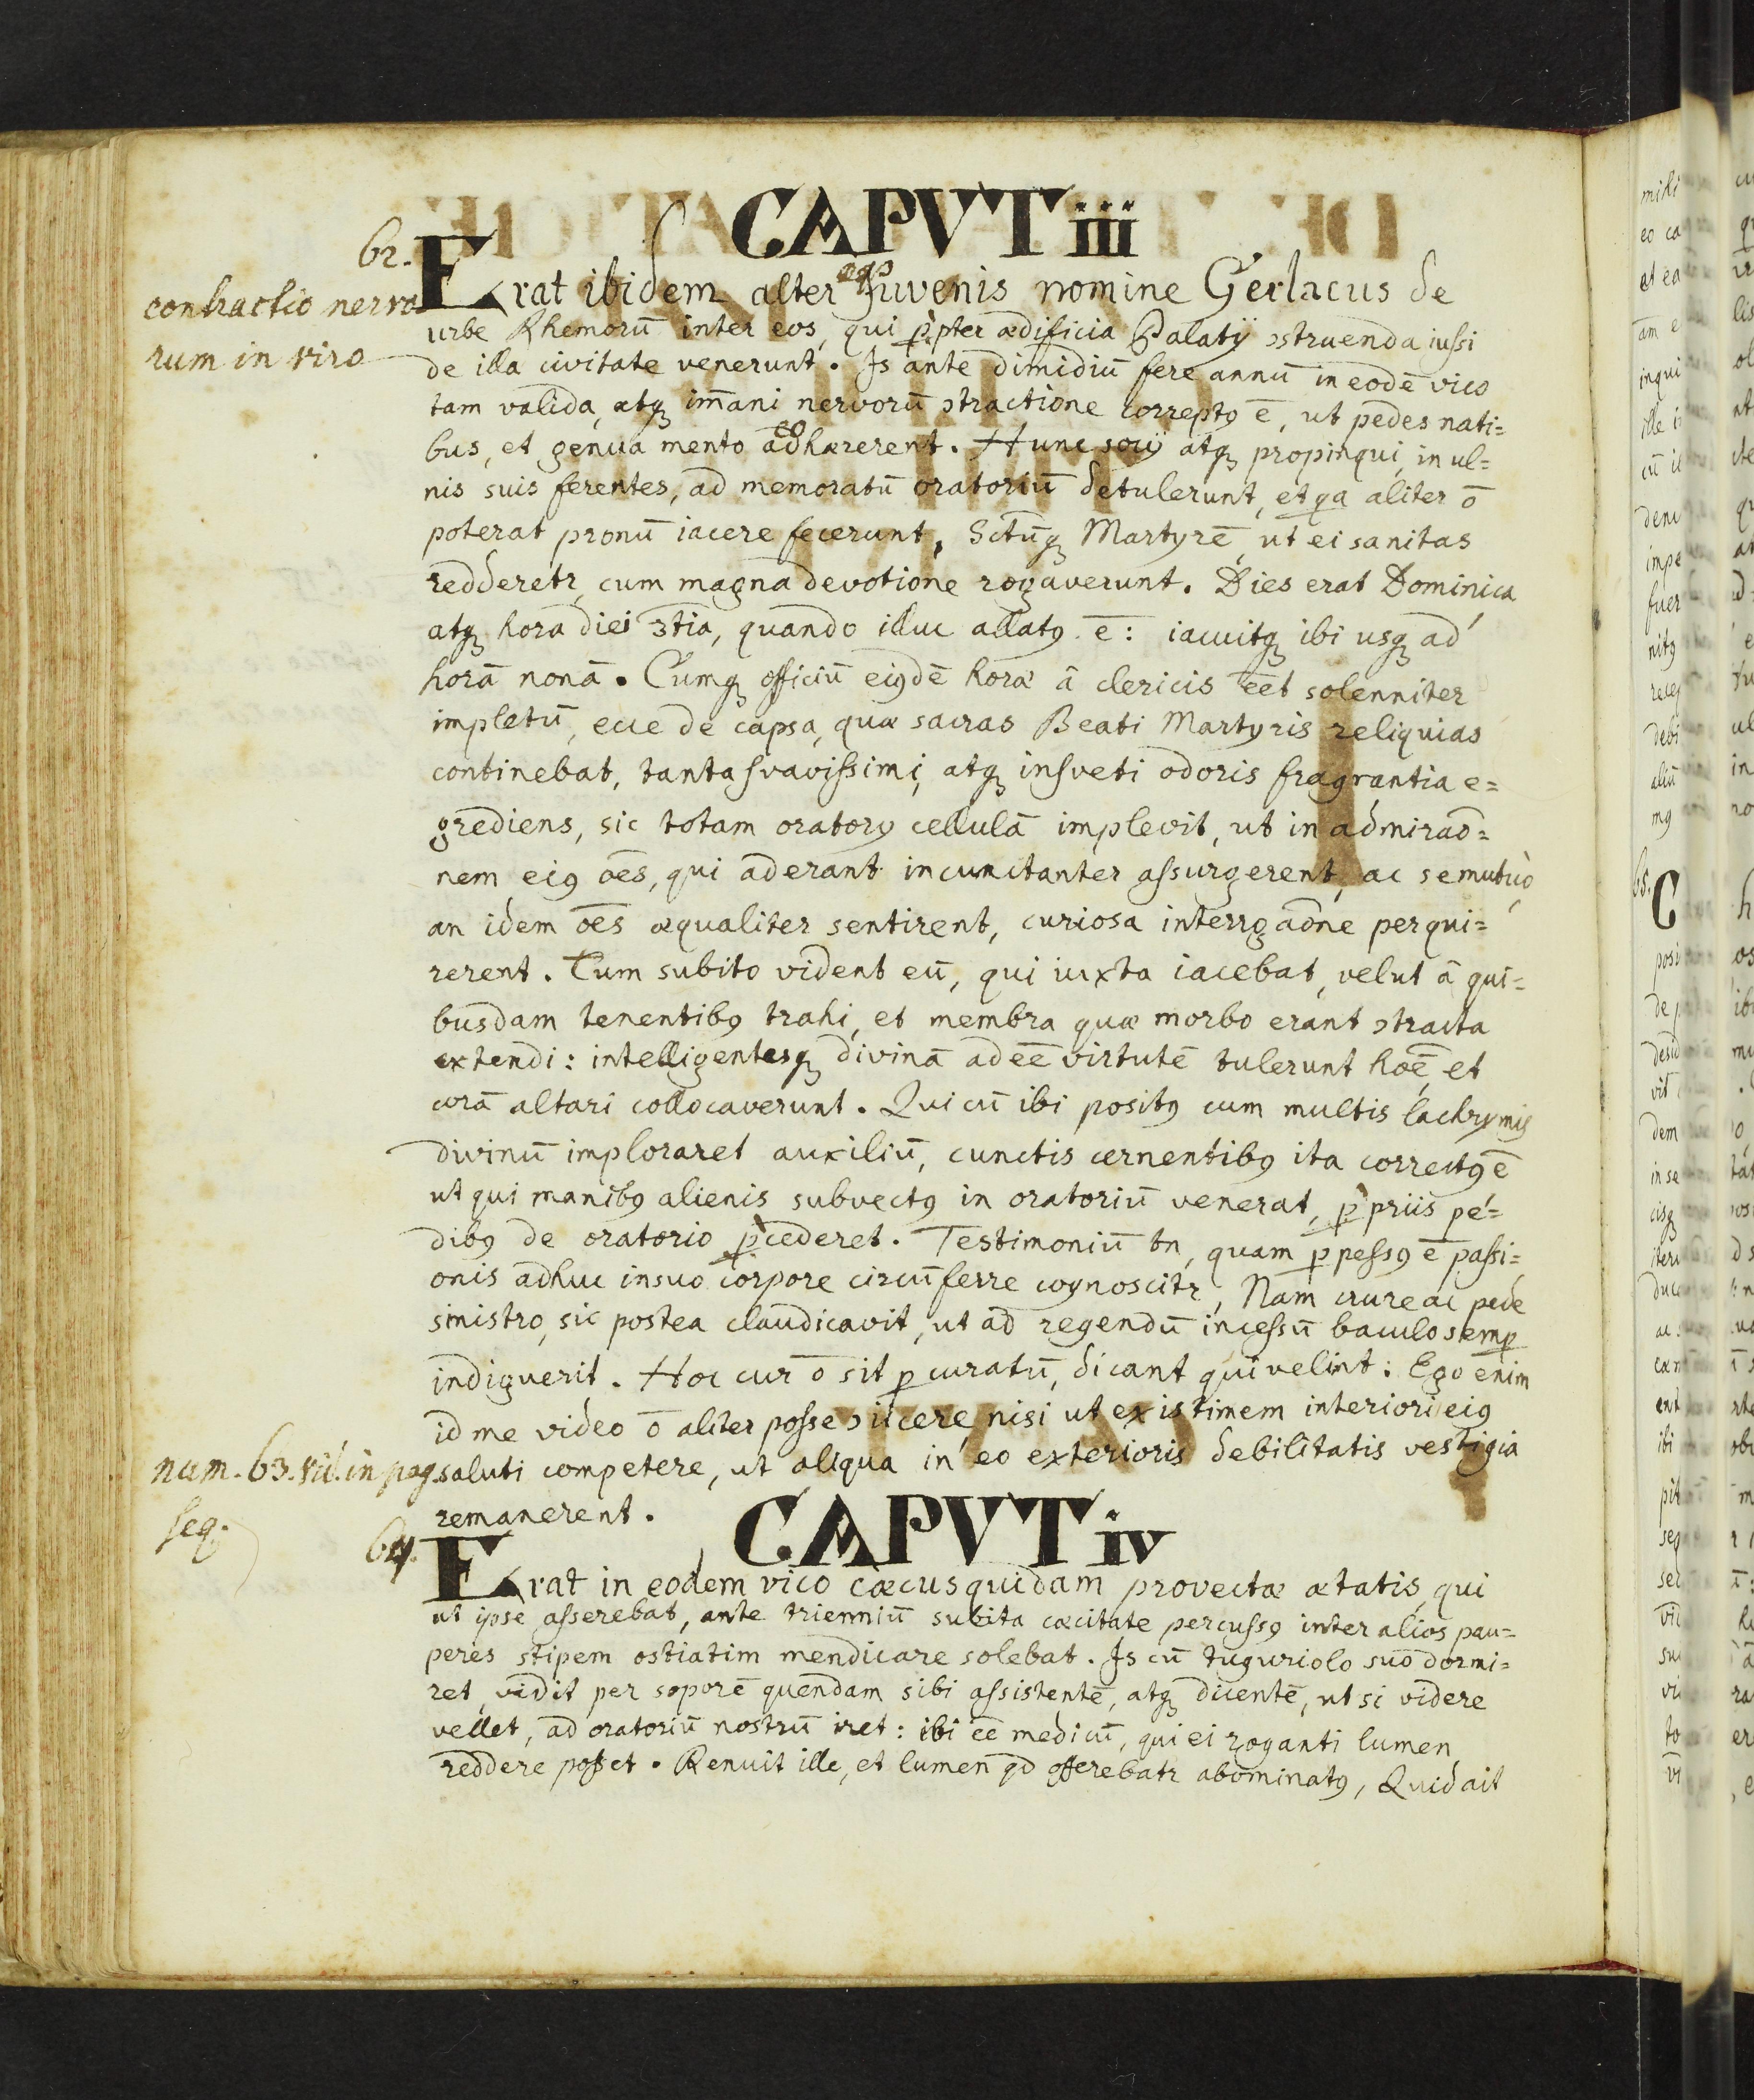 CAPVT iii
62.
Erat ibidem alter Juvenis nomine Gerlacus de
contractio nervo
urbe Rhemorū inter eos, qui ꝓpter ædificia Palatÿ ↄstruenda iuſsi
rum in viro
de illa civitate venerunt. Is ante dimidiū fere annū in eodē vico
tam valida, atq̨ im̄ani nervorū ↄtractione correptꝯ ē, ut pedes nati=
bus, et genua mento adhærerent. Hunc socÿ atq̨ propinqui, in ul=
co
nis suis ferentes, ad memoratū oratoriū detulerunt, et qa aliter ō
poterat pronū iacere fecerunt, Sctūq̨ Martyrē, ut ei sanitas
redderetr, cum magna devotione rogaverunt. Dies erat Dominica
atq̨ hora diei 3tia, quando illuc allatꝯ ē: iacuitq̨ ibi usq̨ ad
horā nonā. Cumq̨ officiū eiꝯdē horæ â clericis eēt solenniter
impletū, ecce de capsa, quæ sacras Beati Martyris reliquias
continebat, tanta ſvaviſsimi, atq̨ inſveti odoris fragrantia e=
grediens, sic totam oratorÿ cellulā implevit, ut in admiraō=
nem eiꝯ oēs, qui aderant incunctanter aſsurgerent, ac se mutuò,
an idem oēs æqualiter sentirent, curiosa interrgaōne perqui=
rerent. Tum subito vident eū, qui iuxta iacebat, velut â qui=
busdam tenentibꝯ trahi, et membra quæ morbo erant ↄtracta
extendi: intelligentesq̨ divinā adeē virtutē tulerunt hoē, et
corā altari collocaverunt. Qui cū ibi positꝯ cum multis lachrymis
divinū imploraret auxiliū, cunctis cernentibꝯ ita correctꝯ ē
ut qui manibꝯ alienis subvectꝯ in oratoriū venerat, ꝓpriis pe=
dibꝯ de oratorio ꝓcederet. Testimoniū tn̄, quam ꝑpeſsꝯ ē paſsi=
onis adhuc in suo corpore circūferre cognoscitr, Nam crure ac pede
sinistro, sic postea claudicavit, ut ad regendū inceſsū baculo semꝑ
indiguerit. Hoc cur ō sit ꝑcuratū, dicant qui velint: Ego enim
id me video ō aliter poſse ↄiicere nisi ut existimem interiori eiꝯ
num. 63. vid. in pag.
saluti competere, ut aliqua in eo exterioris debilitatis vestigia
seq.
remanerent.
CAPVT iv
64.
Erat in eodem vico cæcus quidam provectæ ætatis, qui
ut ipse aſserebat, ante trienniū subita cæcitate percuſsꝯ inter alios pau=
peres stipem ostiatim mendicare solebat. Is cū tuguriolo suō dormi=
ret, vidit per soporē quendam sibi aſsistentē, atq̨ dicentē, ut si videre
vellet, ad oratoriū nostrū iret: ibi eē medicū, qui ei roganti lumen
reddere poſset. Renuit ille, et lumen qd offerebatr abominatꝯ, Quid ait